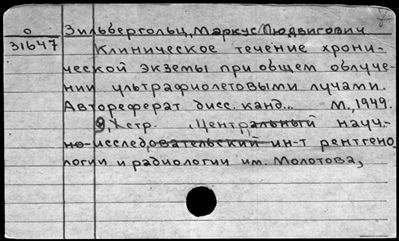 0 Зильбергольц, Маркус Людвигович
31647 Клиническое течение хрони-
ческой экземы при общем облуче-
нии ультрафиолетовыми лучами.
Автореферат дисс. канд... М., 1949.
стр. Центральный науч.
но-исследовательский ин-т рентгено
логии и радиологии им. Молотова,